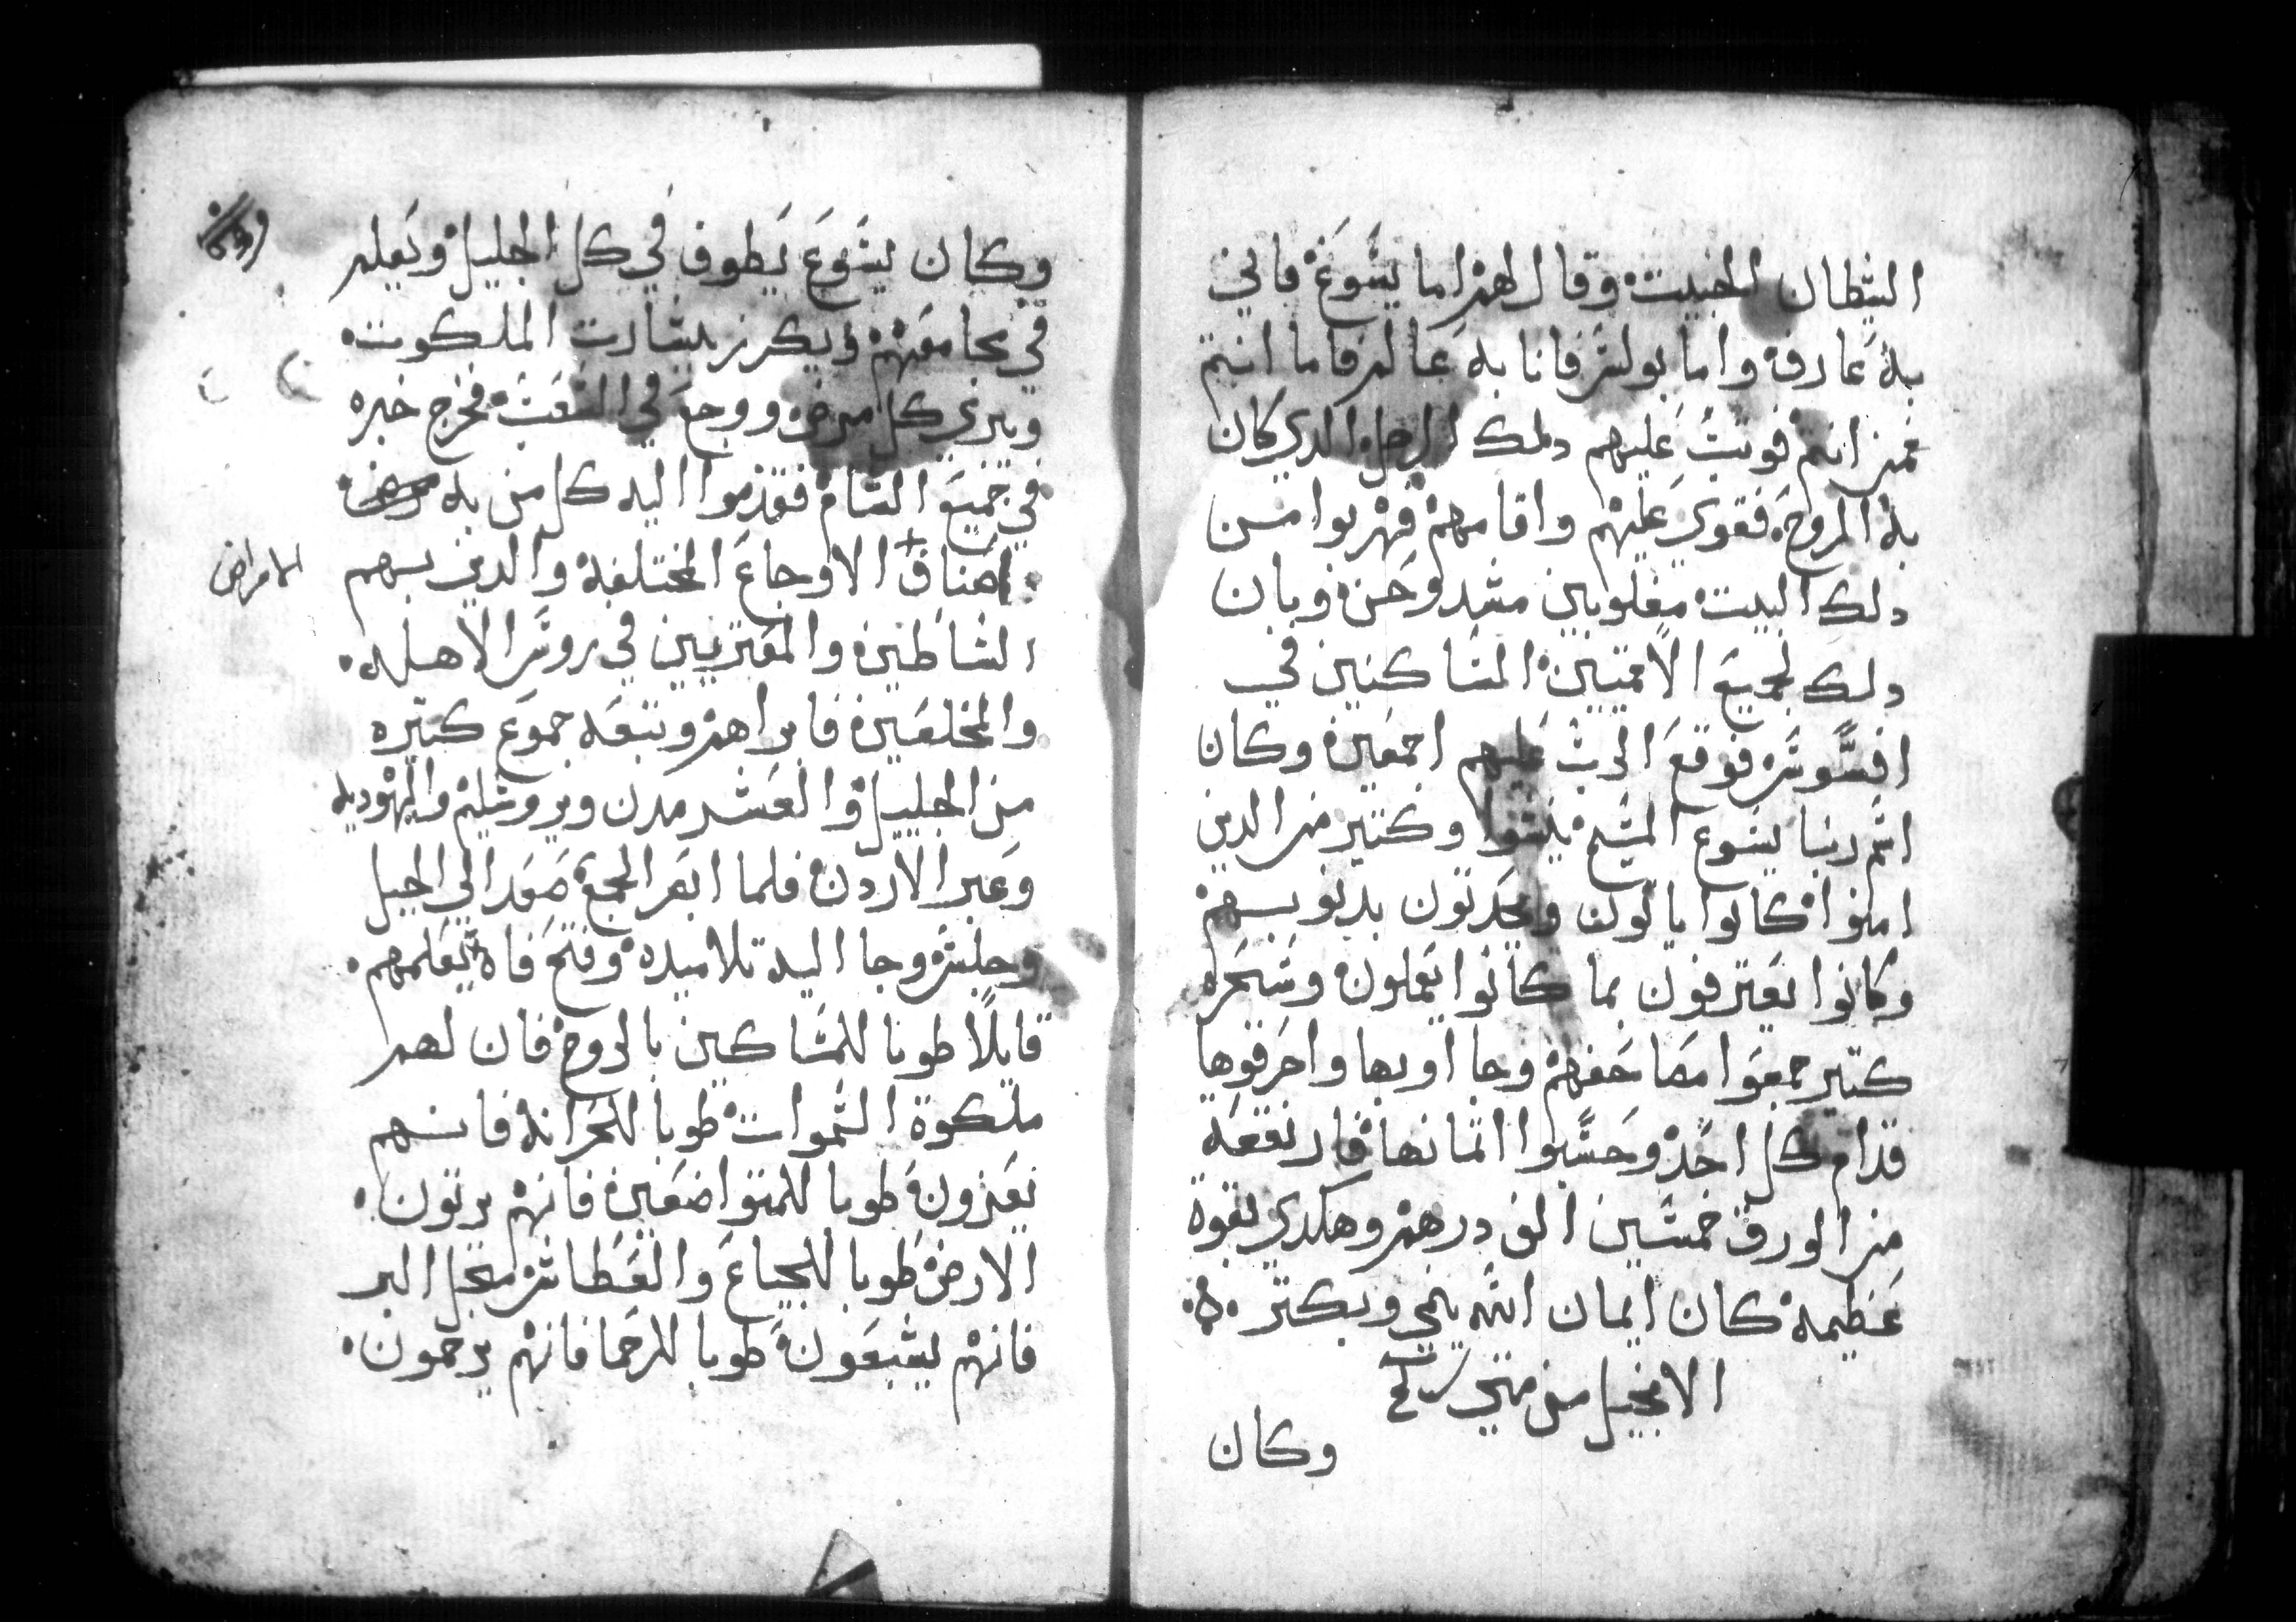 الشيطان الخبيث وقال لهم اما يشوع فاني
به عارفه واما بولش فانا به عالم فاما انتم
فمن انتم فوتب عليهم دلك الرجل الدي كان
به الروح فقوي عليهم واقامهم فهربوا من
دلك البيت مغلوبين مشدوخين وبان
دلك لجميع الامتيين الشاكنين في
افسوش فوقع الرب عليهم اجمعين وكان
اشم ربنا يشوع المشيح يشوا وكتير من الدين
امنوا كانوا ياتون ويحدتون بدنوبهم
وكانوا يعترفون بما كانوا يعملون وشحره
كتير جمعوا مصاحفهم وجااوبها واحرقوها
قدام كل احد وحشبوا اتمانها فارتفعه
من الورق خمشين الف درهم وهكدي بقوة
عظيمه كان ايمان الله ينمي ويكتر ه
الانجيل من متي
وكان
وكان يشوع يطوف في كل الجليل ويعلم
في مجامعهم ويكرز ببشارت الملكوت
ويبري كل مرض ووجع في الشعب فخرج خبره
في جميع الشام فقدموا اليه كل من به
اصناف الاوجاع المختلفه والدين بهم
الامراض
الشاطين والمعتريين في روش الاهله
والمخلعين فابراهم وتبعه جموع كتيره
من الجليل والعشر مدن ويروشليم واليهوديه
وعبر الاردن فلما ابصر الجمع صعد الي الجبل
وجلش وجا اليه تلاميده وفتح فاه يعلمهم
قايلا طوبا للمشاكين بالروح فان لهم
ملكوة الشموات طوبا للحزانه فانهم
يعزون طوبا للمتواضعين فانهم يرتون
الارض طوبا للجياع والعطاش من اجل البر
فانهم يشبعون طوبا للرحما فانهم يرحمون